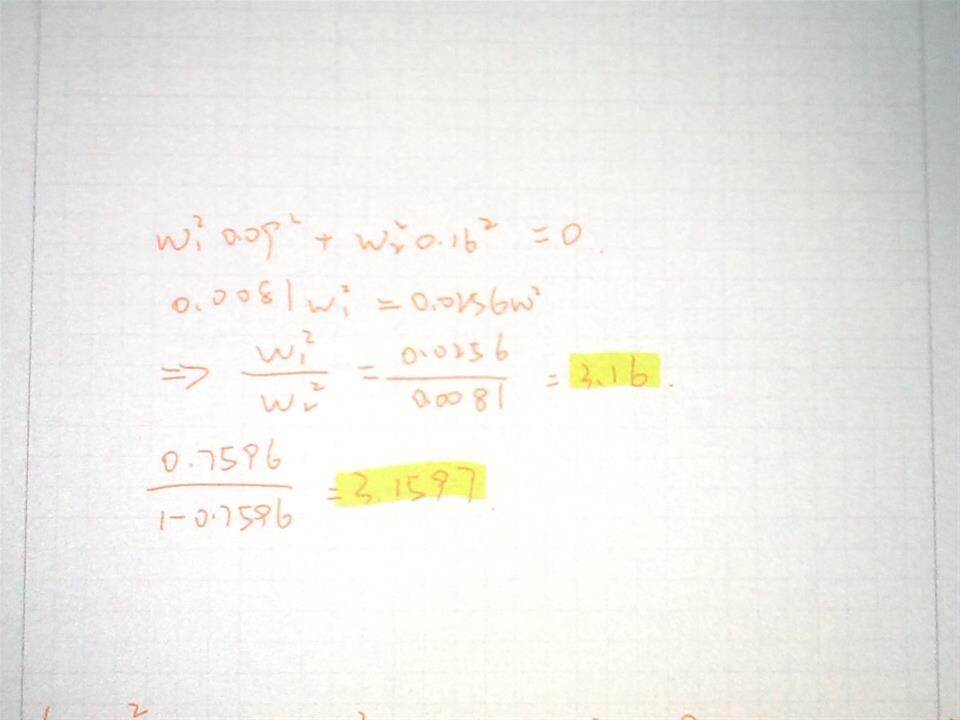 w₁² 0.09² + w₂² 0.16² = 0.
0.0081 w₁² = 0.0256 w²
⇒ w₁² / w₂² = 0.0256 / 0.0081 = 3.16.
0.7596 / 1-0.7596 = 3.1597.